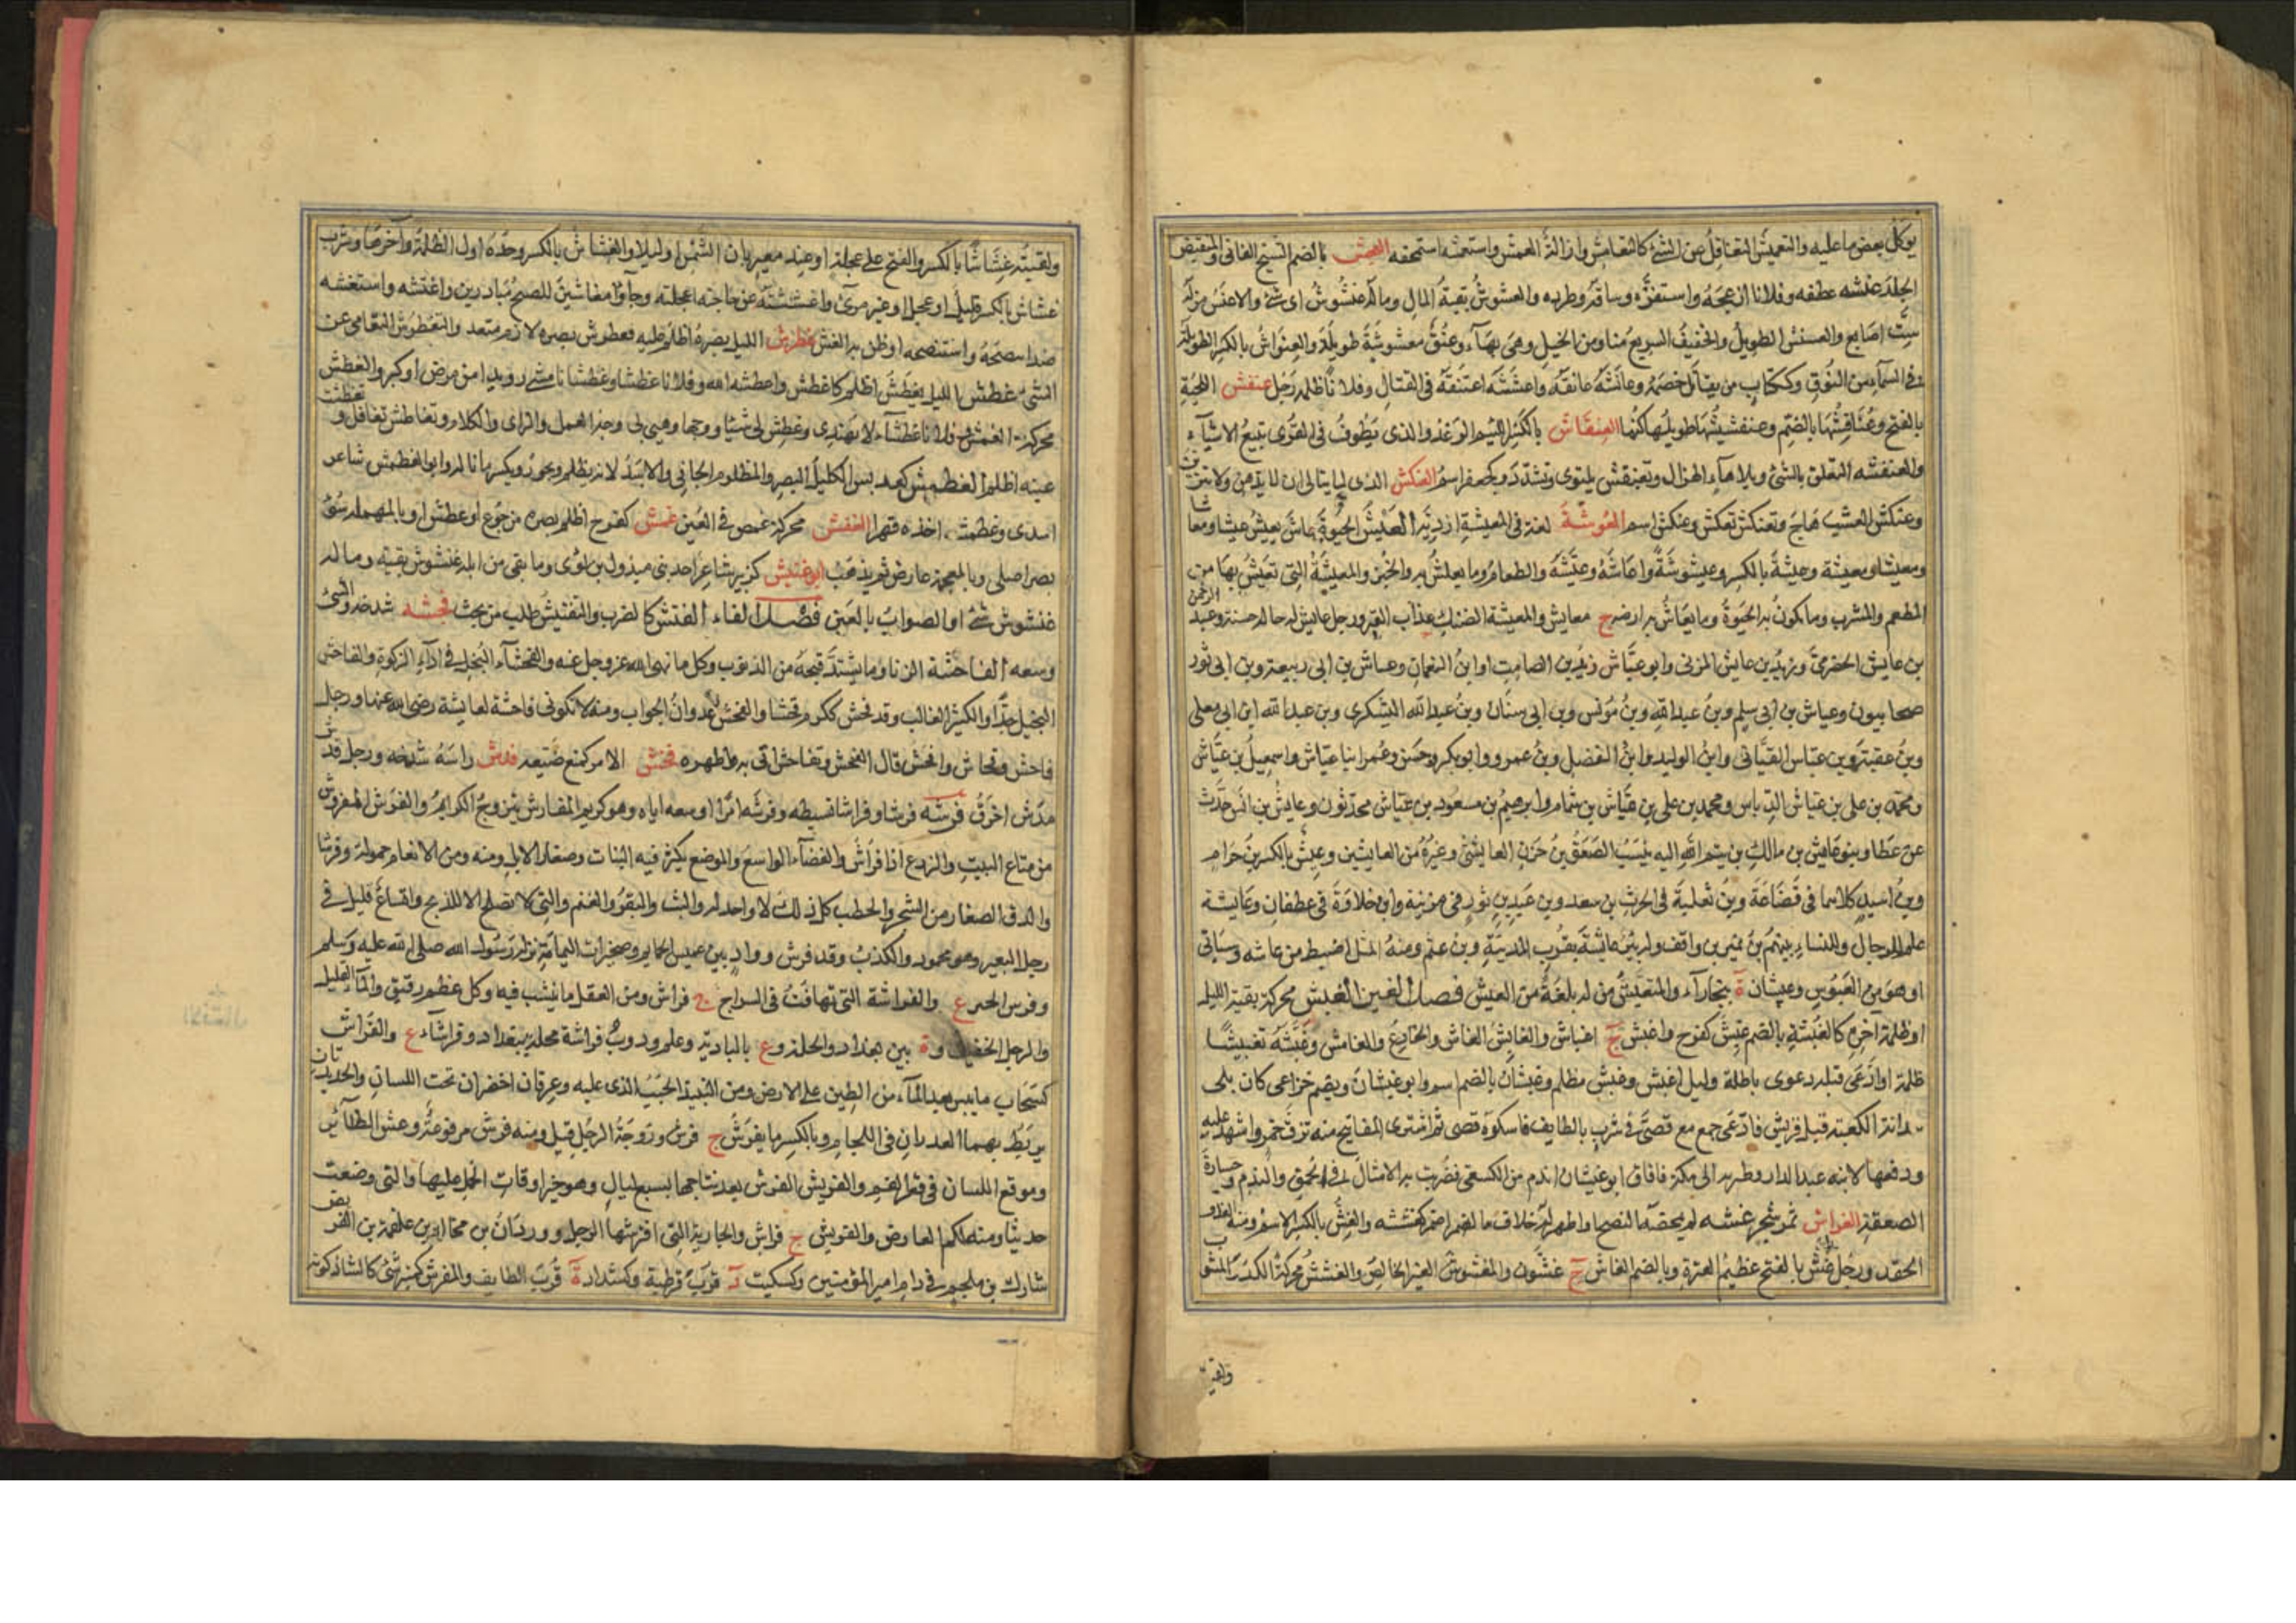 يوكل بعض ما عليه والتعميش التغافل عن الشئ كالتعامش وازالة العمش واستعمشه استحمقه العنجش بالضم الشيخ الفانى والمتقبض
الجلد عنشه عطفه وفلانا ازعجه واستفزه وساقه وطرده والعشوش بقية المال وما له عنشوش اى شئ والاعنش من له
ست اصابع والعنشنش الطويل والخفيف السريع منا ومن الخيل وهى بهاء وعنق معنوشة طويلة والعنواش بالكسر الطويلة
فى السماء من النوق وككتاب من يقاتل خصمه وعانشه عانقه واعتنشه اعتنقه فى القتال وفلانا ظلمه رجل عنفش اللحية
بالفتح وعنافشها بالضم وعنفشيشها طويلها كثها العنقاش بالكسر اللئيم الوغد والذى يطوف فى القرى يبيع الاشياء
والعنقشة التعلق بالشئ وبلا هاء الهزال وتعنقش يلتوى وتشدد وكجعفر اسم العنكش الذى لا يبالى ان لا يدهن ولا يتزين
وعنكش العشب هاج وتعنكش تعكش وعنكش اسم العوشة لغة فى المعيشة ازدية العيش الحيوة عاش يعيش عيشا ومعاشا
ومعيشا ومعيشة وعيشة بالكسر وعيشوشة واعاشه وعيشه والطعام وما يعاش به والخبز والمعيشة التى تعيش بها من
المطعم والمشرب وما يكون به الحيوة وما يعاش به او فيه ج معايش والمعيشة الضنك عذاب القبر ورجل عايش له حالة حسنة وعبد الرحمن
بن عايش الحضرمى وزيد بن عايش المزنى وابو عياش زيد بن الصامت او ابن النعمان وعياش بن ابى ربيعة وبن ابى ثور
صحابيون وعياش بن ابى سليم وبن عبد الله وبن مونس وبن ابى سنان وبن عبد الله اليشكرى وبن عبد الله ابن ابى معلى
وبن عقبة وبن عباس القتبانى وابن الوليد وابن الفضل وبن عمرو وابو بكر وحسن وعمر ابنا عياش واسمعيل بن عياش
ومحمد بن على بن عياش الدباس ومحمد بن على بن عياش بن شمام وابرهيم بن مسعود بن عياش محدثون وعايش بن انس حدث
عن عطا وبنو عايش بن مالك بن تيم الله اليه ينسب الصعق بن حزن العايشى وغيره من العايشين وعيش بالكسر بن حرام
وبن اسيد كلاهما فى قضاعة وبن ثعلبة فى الحرث بن سعد وبن عبد بن ثور فى مزينة وابن خلاوة فى غطفان وعايشة
علم للرجال والنساء بينهم بن نمير بن واقف وله بئر عائشة بقرب المدينة وبن عثم ومنه المثل اضبط من عايشة وسياتى
او هو من العبوس وعيشان ة ببخاراء والمتعيش من له بلغة من العيش فصل الغين الغبش محركة بقية الليل
او ظلمة آخره كالغبشة بالضم غبش كفرح واغبش ج اغباش والغابش الغاش والخادع والغامش وغبشه تغبيشا
ظلمة او ادعى قبله دعوى باطلة وليل اغبش وغبش مظلم وغبشان بالضم اسم وابو غبشان ويضم خزاعى كان يلى
سدانة الكعبة قبل قريش فاجتمع مع قصى فى شرب بالطايف فاسكره قصى ثم اشترى المفاتيح منه بزق خمر واشهد عليه
ودفعها لابنه عبد الدار وطير به الى مكة فافاق ابو غبشان اندم من الكسعى فضربت به الامثال فى الحمق والندم وخسارة
الصعقة الغراش ثمر شجر غشه لم يمحضه النصح او اظهر له خلاف ما اضمر كغششه والغش بالكسر الاسم ومنه الغل و
الحقد ورجل غش بالفتح عظيم السرة وبالضم الغاش ج غشون والمغشوش الغير الخالص والغشش محركة الكدر المشوب
ولقيته غشاشا بالكسر والفتح على عجلة او عند مغيربان الشمس او ليلا والغشاش بالكسر وحده اول الظلمة وآخرها وشرب
غشاش بالكسر قليل او عجل او غير مرئ واغششته عن حاجته اعجلته وجاؤا مغاشين للصبح مبادرين واغتشه واستغشه
ضد انتصحه واستنصحه او ظن به الغش غطرش الليل بصره اظلم عليه فغطرش بصره لازم متعد والتغطرش التعامى عن
الشئ غطش الليل يغطش اظلم كاغطش واغطشه الله وفلان غطشا وغطشانا مشى رويدا من مرض او كبر والغطش
محركة الغمش وفلاة غطشاء لا يهتدى وغطش لى شيئا ووجها وهيئ لى وجه العمل والراى والكلام وتغاطش تغافل و
عينه اظلم الغطمش كعملس الكليل البصر والظلوم الجافى والاسد لانه يظلم ويجور ويكسر ما ناله وابو الغطمش شاعر
اسدى وغطمشه اخذه قهرا الغفش محركة غمص فى العين غمش كفرح اظلم بصره من جوع او عطش او بالمهملة سوء
بصر اصلى وبالمعجمة عارض ثم يذهب ابو غنيش كزبير شاعر احد بنى مبذول بن لؤى وما بقى من ابله غنشوش بقية وما له
غنشوش شئ او الصواب بالعين فصل الفاء الفتش كالضرب والتفتيش طلب من بحث فجشه شدخه والشئ
وسعه الفاحشة الزنا وما يشتد قبحه من الذنوب وكل ما نهى الله عز وجل عنه والفحشاء البخل فى اداء الزكوة والفاحش
البخيل جدا والكثير الغالب وقد فحش ككرم فحشا والفحش عدوان الجواب ومنه لا تكونى فاحشة لعائشة رضى الله عنها ورجل
فاحش وفحاش وافحش قال الفحش وتفاحش اتى به واظهره فخش الامر كمنع ضيعه فدش راسه شدخه ورجل فدش
مدش اخرق فرشه فرشا وفراشا بسطه وفرشه امرا اوسعه اياه وهو كريم المفارش يتزوج الكرايم والفرش المفروش
من متاع البيت والزرع اذا فرش والفضاء الواسع والموضع يكثر فيه النبات وصغار الابل ومنه ومن الانعام حمولة وفرشا
والدق الصغار من الشجر والحطب كل ذلك لا واحد له والبث والبقر والغنم والتى لا تصلح الا للذبح واتساع قليل فى
رجل البعير وهو محمود والكذب وقد فرش وواد بين عميس الحمايم وصخيرات اليمامة نزله رسول الله صلى الله عليه وسلم
وفرش الحمير ع والفراشة التى تهافت فى السراج ج فراش ومن القفل ما ينشب فيه وكل عظم رقيق والماء القليل
والرجل الخفيف وة بين بغداد والحلة وع بالبادية وعلم ودرب فراشة محلة ببغداد وفراشاء ع والفراش
كسحاب ما يبس بعد الماء من الطين على الارض ومن النبيذ الحبب الذى عليه وعرقان اخضران تحت اللسان والحديدتان
يربط بهما العذاران فى اللجام وبالكسر ما يفرش ج فرش وزوجة الرجل قيل ومنه فرش مرفوعة وعش الطائر
وموقع اللسان فى قعر الفم والفريش الفرس بعد نتاجها بسبع ليال وهو خير اوقات الحمل عليها والتى وضعت
حديثا ومنه لكم العارض والفريش ج فراش والجارية التى افترشها الرجل ووردان بن مجالد بن علفة بن الفريش
شارك بن ملجم فى دم امير المؤمنين وكسكيت د قرب قرطبة وكشداد ة قرب الطايف والمفرش كمنبر شئ كالشاذكونه